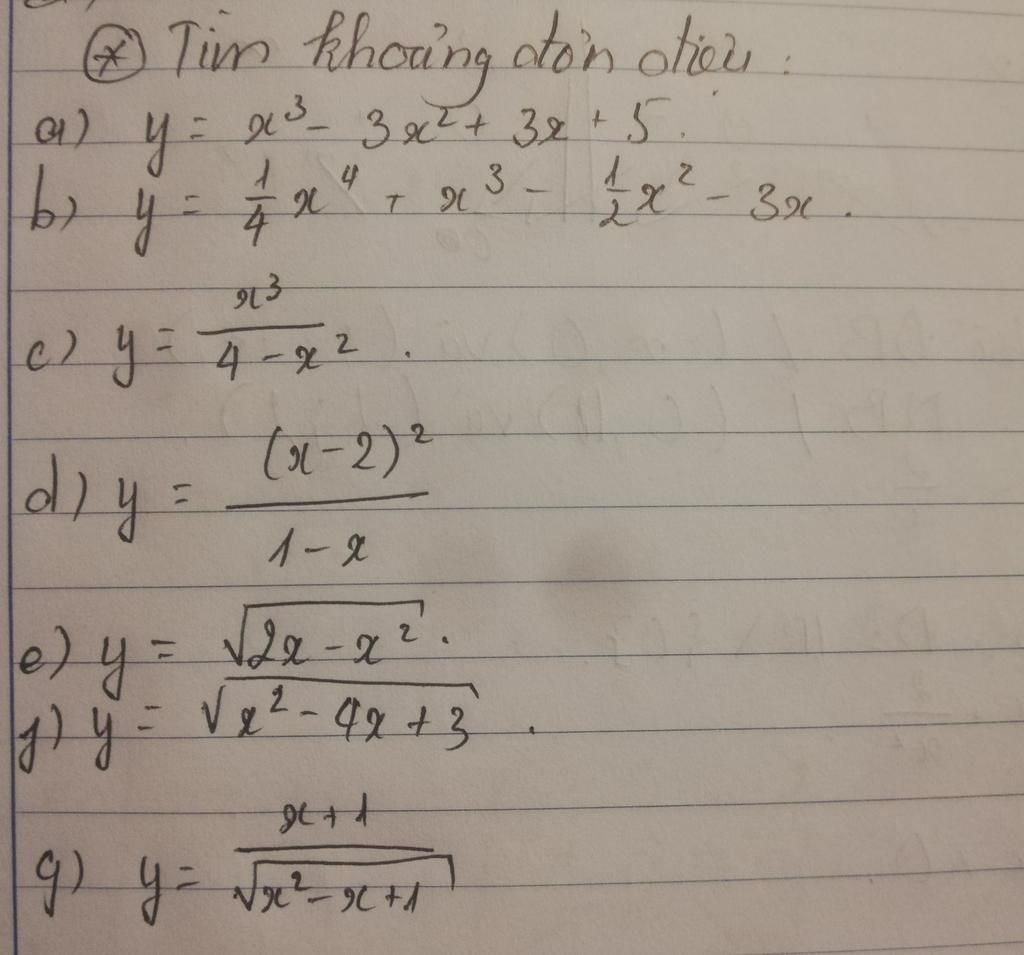 * Tìm khoảng đơn điệu :
a) y = x³ - 3x² + 3x + 5.
b) y = 1/4 x⁴ + x³ - 1/2 x² - 3x .
c) y = x³/(4 - x²) .
d) y = (x-2)²/(1-x)
e) y = √(2x - x²) .
f) y = √(x² - 4x + 3) .
g) y = (x+1)/√(x² - x + 1)